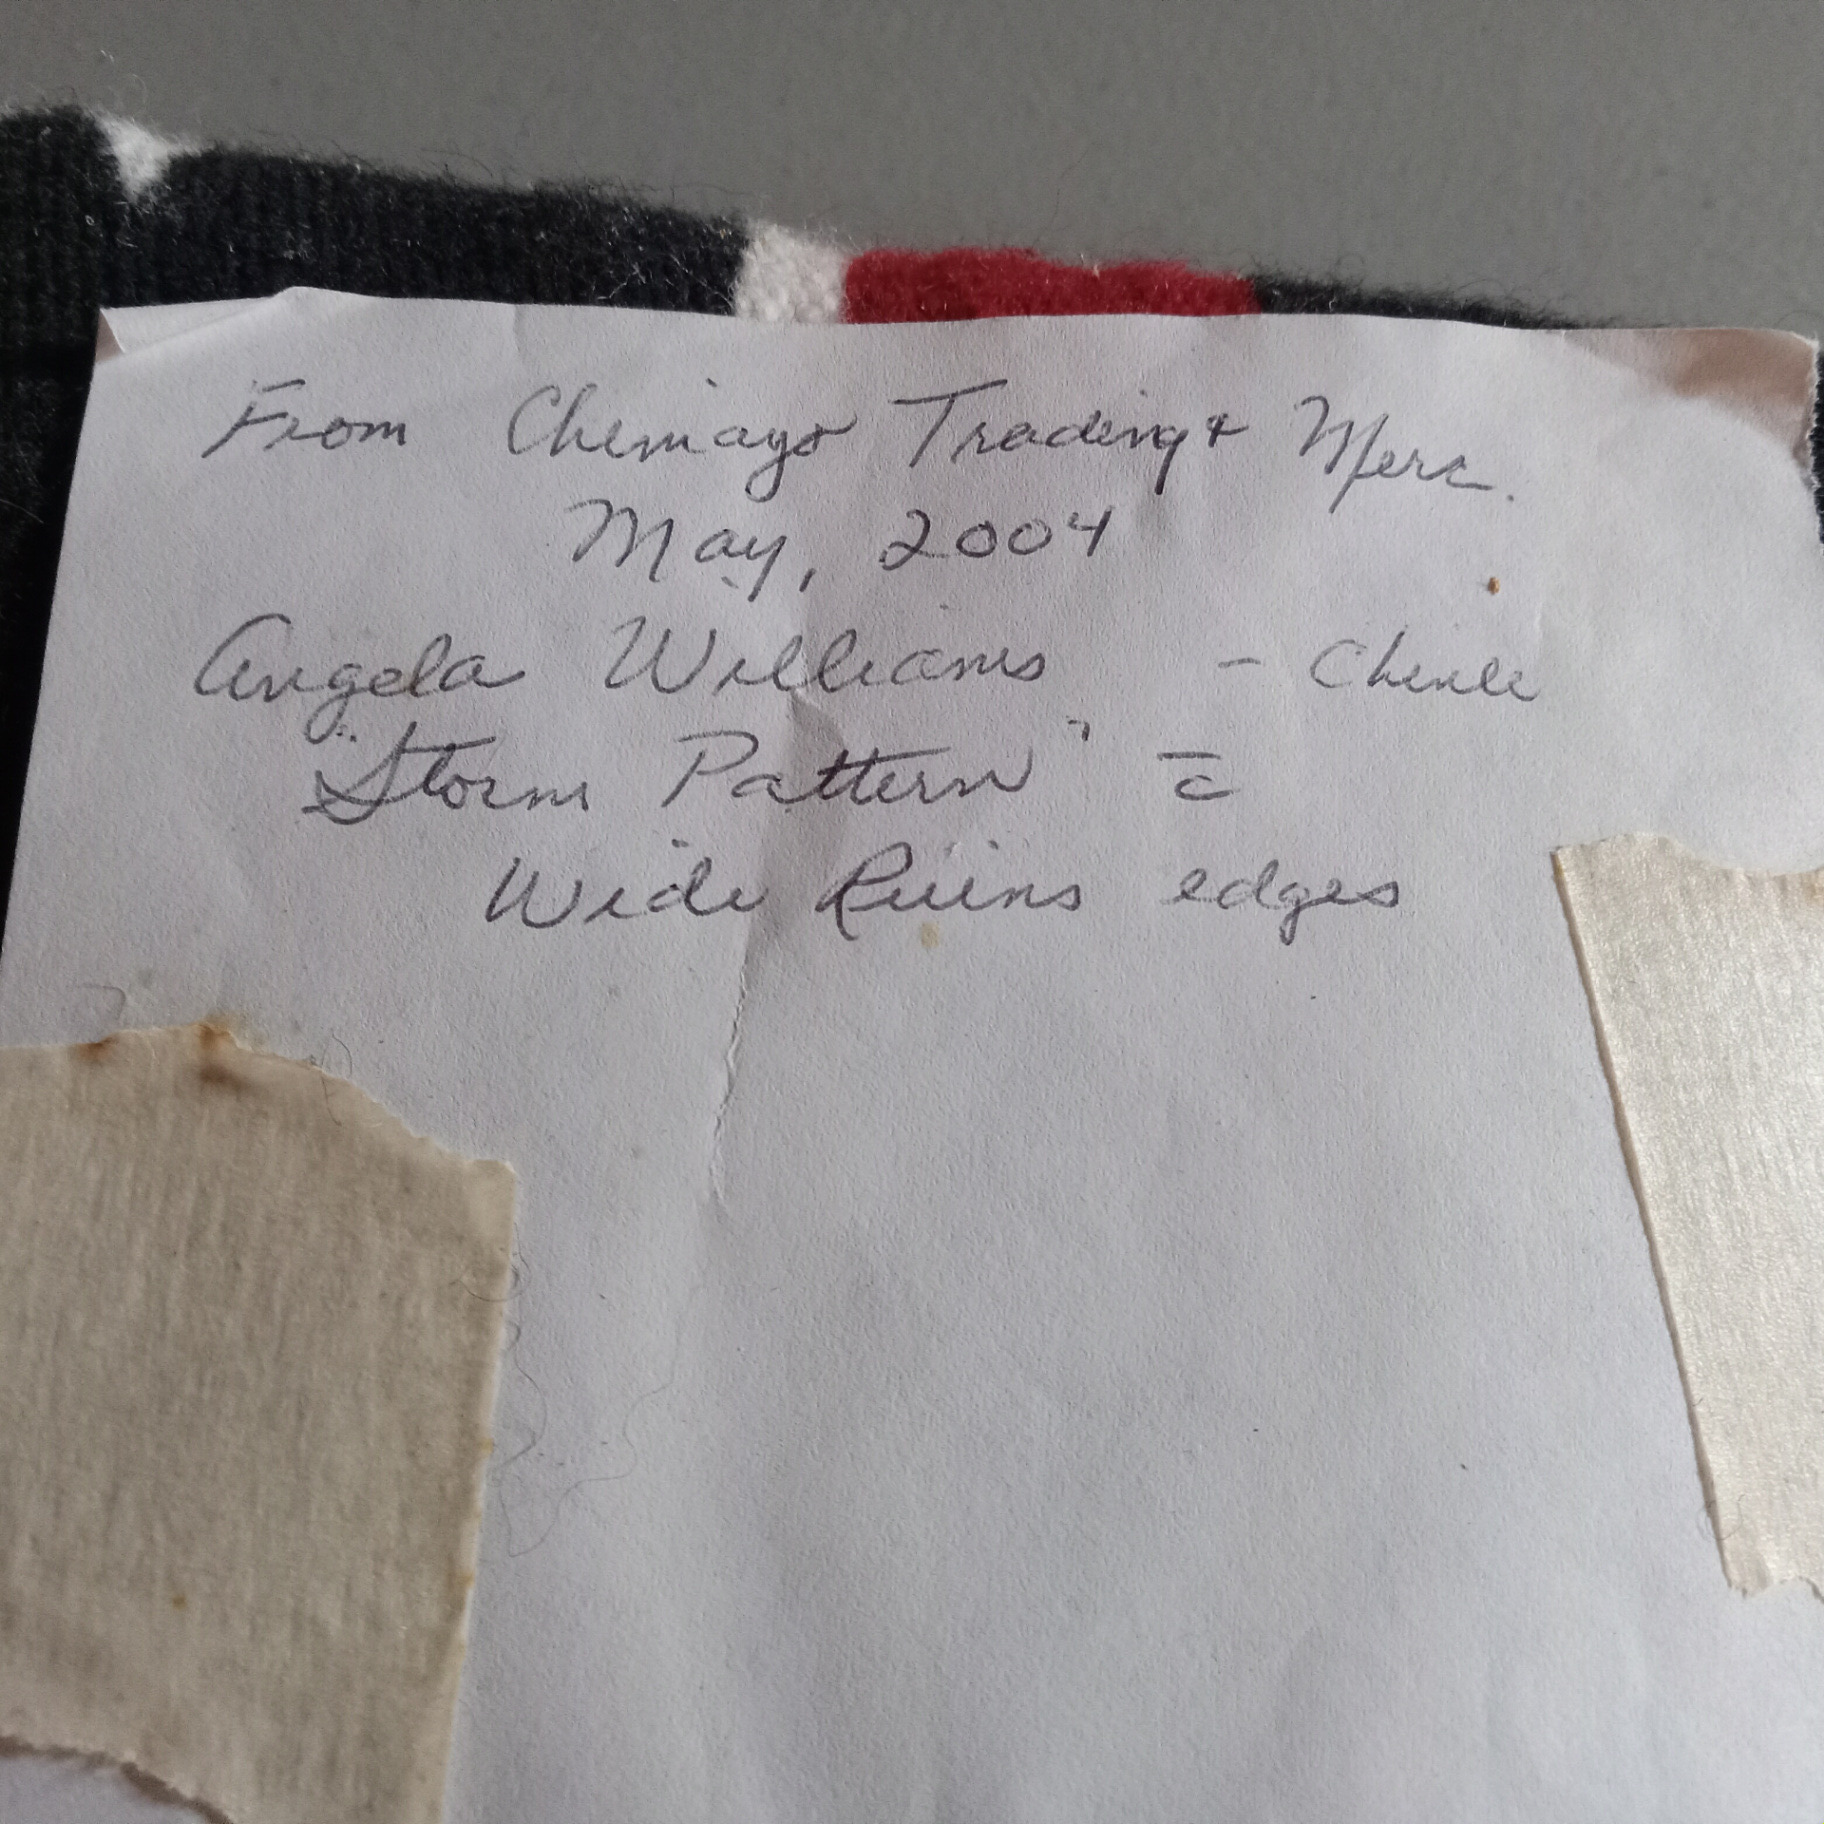 From Chemayo Trading & Merc.
May, 2004
Angela Williams - Chinle
"Storm Pattern" c̄
Wide Ruins edges